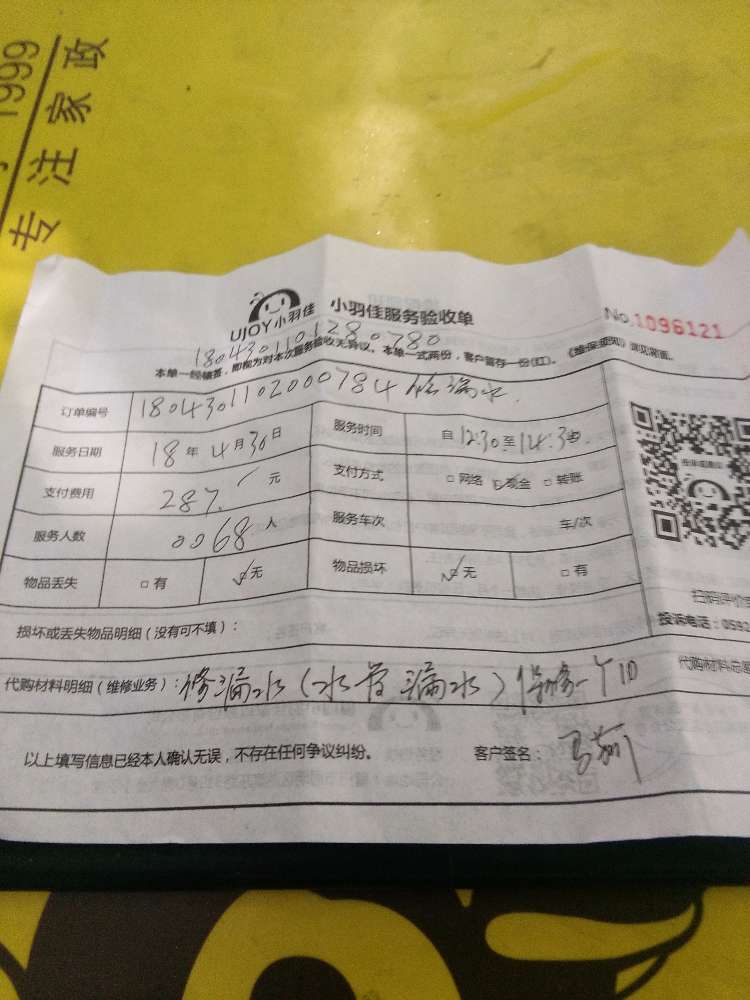 1999
专注家政
UJOY小羽佳 小羽佳服务验收单 No.1096121
1804301101280780
本单一经签, 即视为对本次服务验收无异议。本单一式两份, 客户留存一份(红)。《维保须知》详见背面。
订单编号 1804301102000784 修漏水
服务日期 18年4月30日 服务时间 自12:30至14:30
支付费用 287.元 支付方式 □网络 ☑现金 □转账
服务人数 0068人 服务车次 车/次
物品丢失 □有 ☑无 物品损坏 ☑无 □有
扫码评价
投诉电话:0592
损坏或丢失物品明细(没有可不填):
代购材料明细(维修业务):修漏水(水管漏水)保修一个 代购材料总
以上填写信息已经本人确认无误,不存在任何争议纠纷。 客户签名: